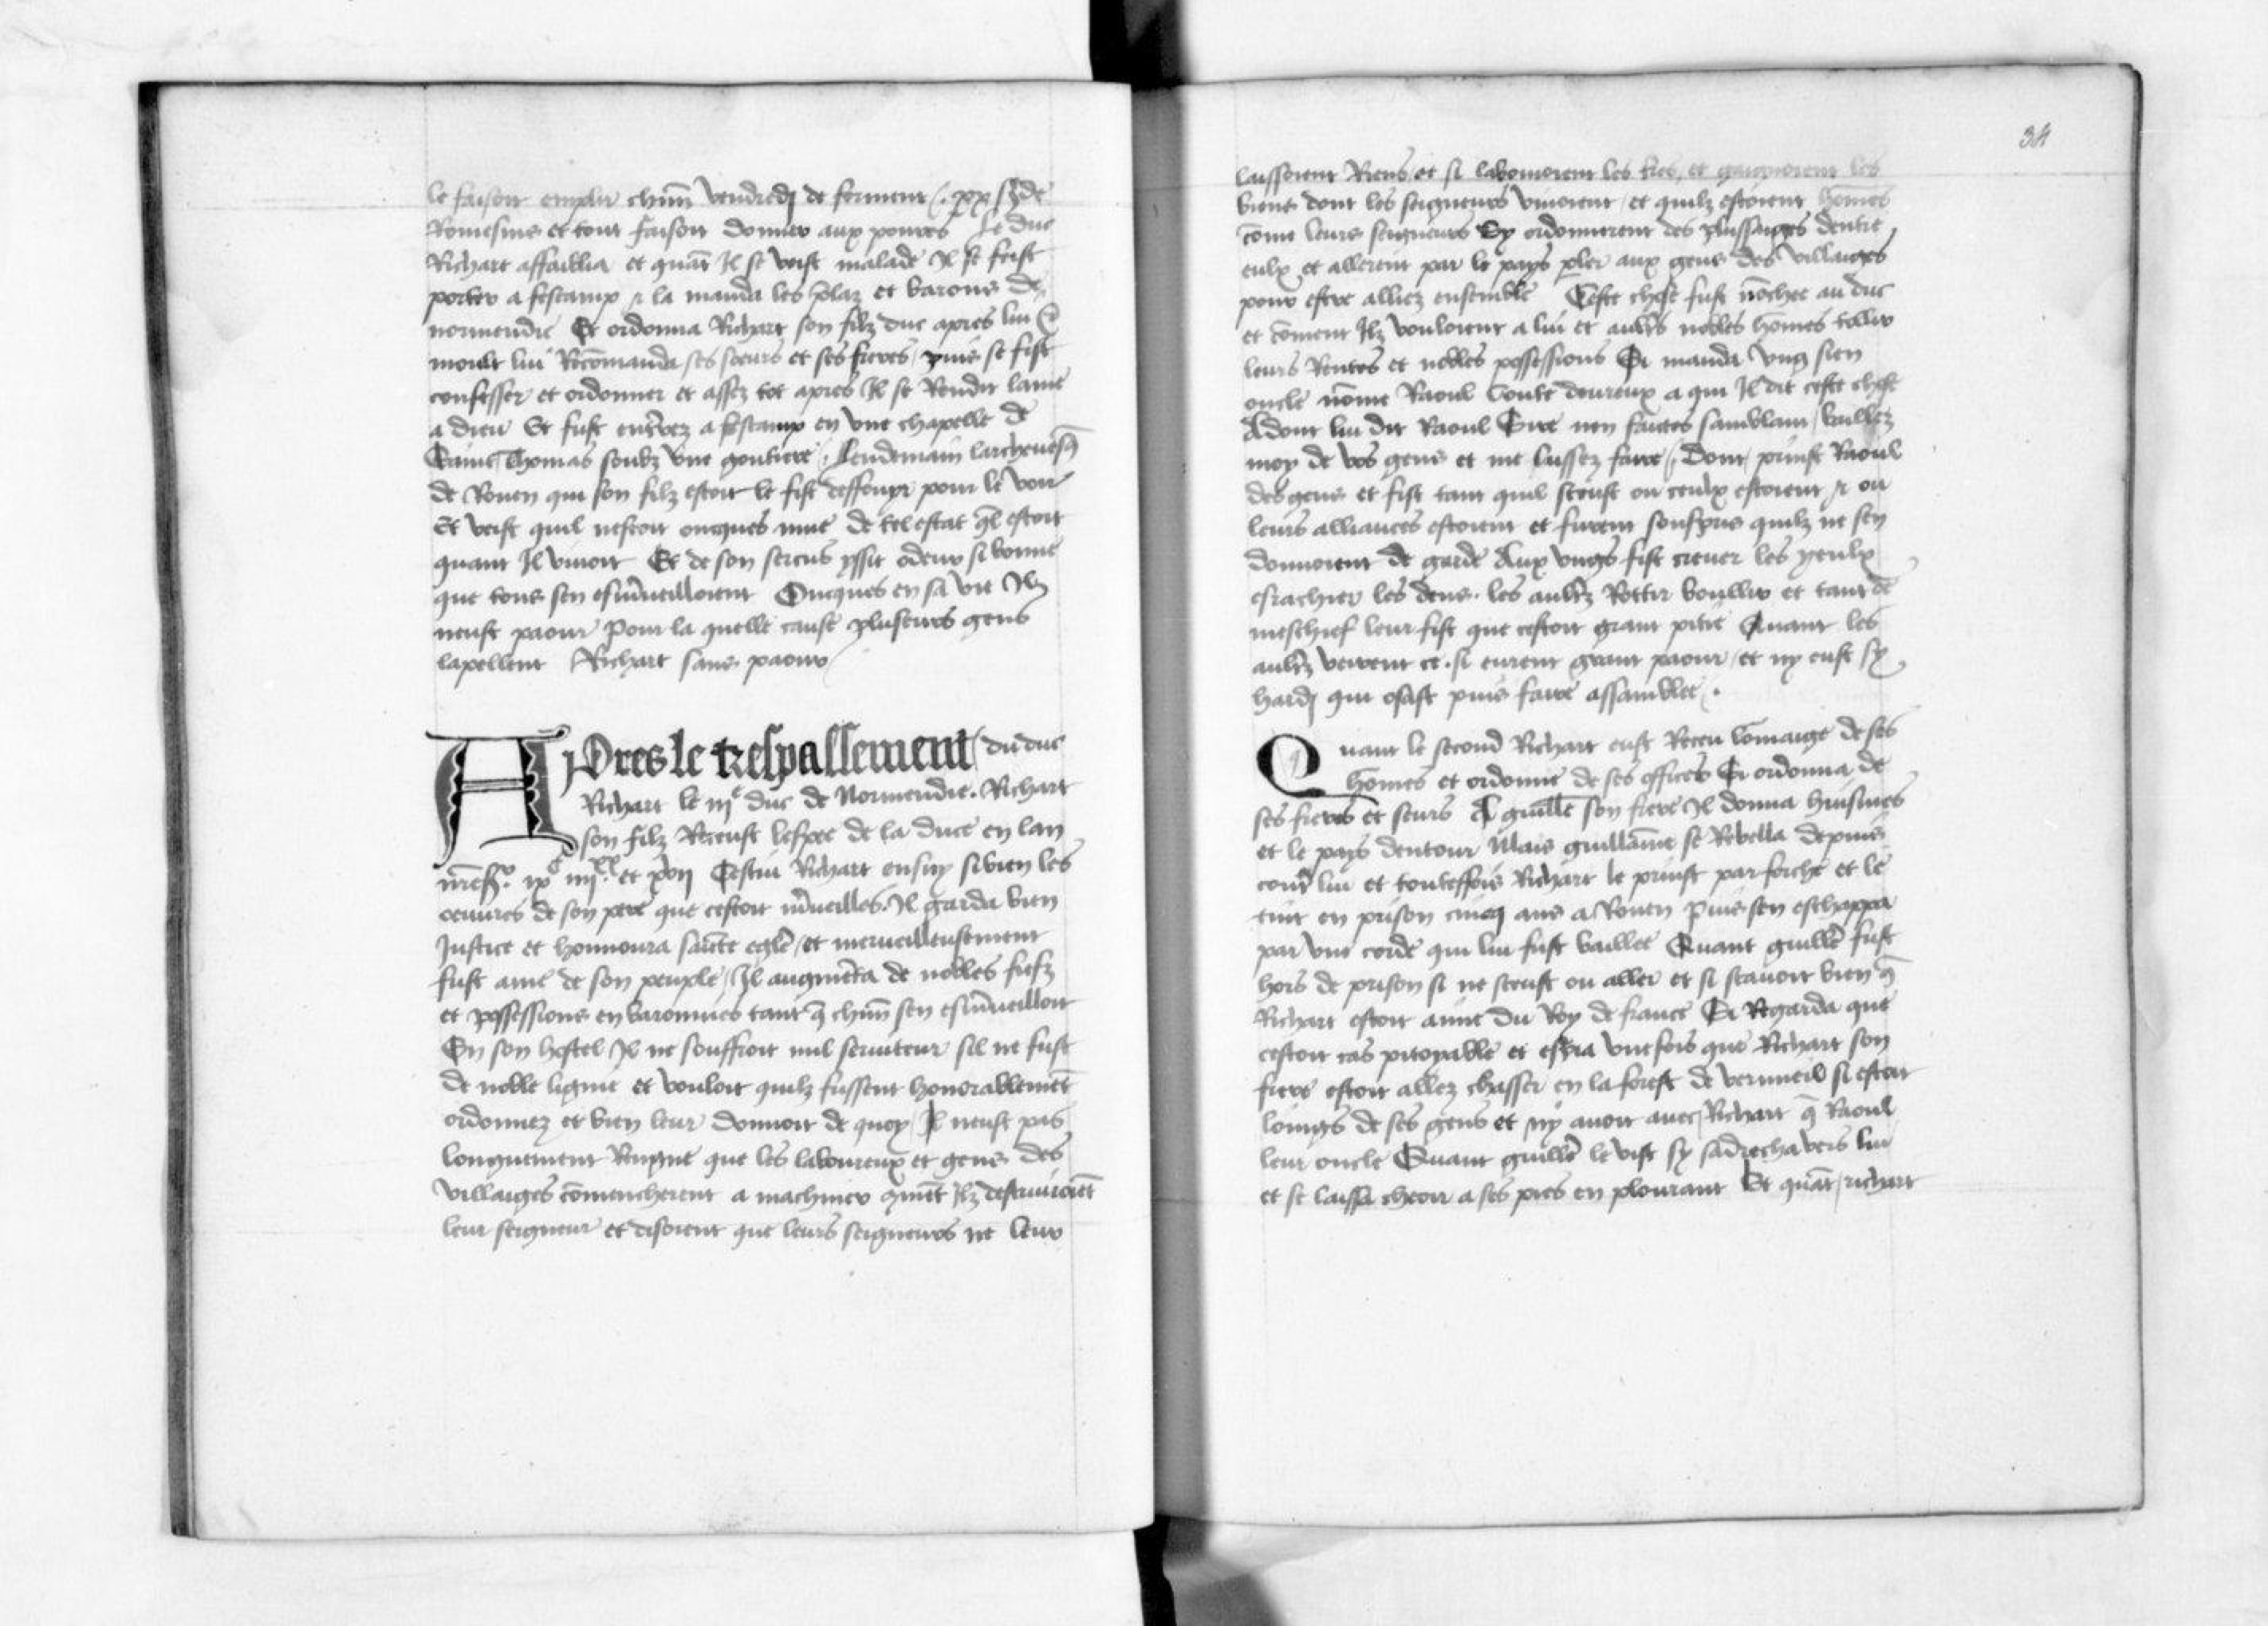 le faisoit emplir chūn vendredj de forment / . xx s̄ de
Romesins et tout faisoit donner aux poures Le duc
Richart affaiblia et quāt Il se veist malade Il se feist
porter a fescamp / la manda les p̄laz et barons de
normendie Et ordonna Richart son filz duc apres lui Et
moult lui Recōmanda ses soeurs et ses freres / puis se fist
confesser et ordonner et assez tot apres Il se Rendit lame
a dieu Et fust ent̄rez a fescamp en vne chapelle de
Saint Thomas soubz vne goutiere / Lendemain larcheuesq̄
de Rouen qui son filz estoit le fist deffouyr pour le veoir
Et veist quil nestoit oncques mue de tel estat q̄l estoit
quant Il viuoit Et de son sercus yssit odeur si bonne
que tous sen esm̄ueilloient Oncques en sa vie Il
neust paour Pour la quelle cause pluseurs gens
lapellent Richart sans paour
APres le trespassement du duc
Richart le iije duc de Normendie . Richart
son filz Receust lespee de la duce en lan
ixc iiijxx et xvij Cestui Richart ensuy si bien les
oeuures de son pere que cestoit m̄ueilles . Il garda bien
Justice et honnoura saīcte eglē / et merueilleusement
fust ame de son peuple / Il augmēta de nobles fiefz
et possessions en baronnies tant q̄ chūn sen esm̄ueilloit
En son hostel Il ne souffroit nul seruiteur sil ne fust
de noble lignie et vouloit quilz fussent honorablemēt
ordonnez et bien leur donnoit de quoy / Il neust pas
longuement Regne que les laboureux et gens des
villaiges cōmencherent a machiner 9mēt Ilz destruiroiēt
leur seigneur et disoient que leurs seigneurs ne leur
34
laissoient Riens / et si labouroient les t̄res , et gaignoient les
biens dont les seigneurs viuoient / et quilz estoient hōmes
cōme leurs seigneurs Sy ordonnerent des plussaiges dentre
eulx et allerent par le pays p̄ler aux gens des villaiges
pour estre alliez ensemble Ceste chose fust nōchee au duc
et cōment Ilz vouloient a lui et ault̄s nobles hōmes tollir
leurs Rentes et nobles possessions Si manda vng sien
oncle nōme Raoul Conte deureux a qui Il dit ceste chose
Adont lui dit Raoul Sire nen faictes samblant / bailliez
moy de vos gens et me laissez faire / Dont prinst Raoul
des gens et fist tant quil sceust ou ceulx estoient / ou
leurs alliances estoient et furent souspris quilz ne sen
donnoient de garde Aux vngs fist creuer les yeulx
esrachier les dens . les ault̄z Rottir boullir et tant de
meschief leur fist que cestoit grant pitie Quant les
ault̄z veirent ce . si eurent grant paour / et ny eust sy
hardj qui osast puis faire assamblee .
Quant le second Richart eust Receu homaige de ses
hōmes et ordonne de ses offices Si ordonna de
ses freres et seurs A guillē son frere Il donna huismes
et le pays dentour Mais guillāme se Rebella depuis
cont̄ lui et touteffois Richart le prinst par forche et le
tint en prison cincq ans a Rouen Puis sen eschappa
par vne corde qui lui fust baillee Quant guillē fust
hors de prison si ne sceust ou aller et si scauoit bien q̄
Richart estoit amie du Roy de france Si Regarda que
cestoit cas pitoyable et espia vne fois que Richart son
frere estoit allez chasser en la forest de verneuil si estoit
loings de ses gens et ny auoit auec Richart q̄ Raoul
leur oncle Quant guillē le vist sy sadrecha vers lui
et se laissa cheoir a ses pies en plourant Et quāt richart